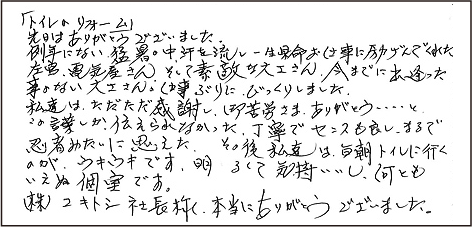 「トイレのリフォーム」
先日はありがとうございました。
例年にない猛暑の中、汗を流し一生懸命お仕事に励んでくれた
左官、電気屋さん、そして素敵な大工さん、今までに出逢った
事のない大工さん。仕事ぶりにびっくりしました。
私達は、ただただ感謝し、ご苦労さま、ありがとう……と、
この言葉しか伝えられなかった。丁寧でセンスも良し、まるで
忍者みたいに思えた。その後私達は、毎朝トイレに行く
のが、ウキウキです。明るくて気持……し、何とも
いえぬ個室です。
(株)ユキトシ社長様、本当にありがとうございました。